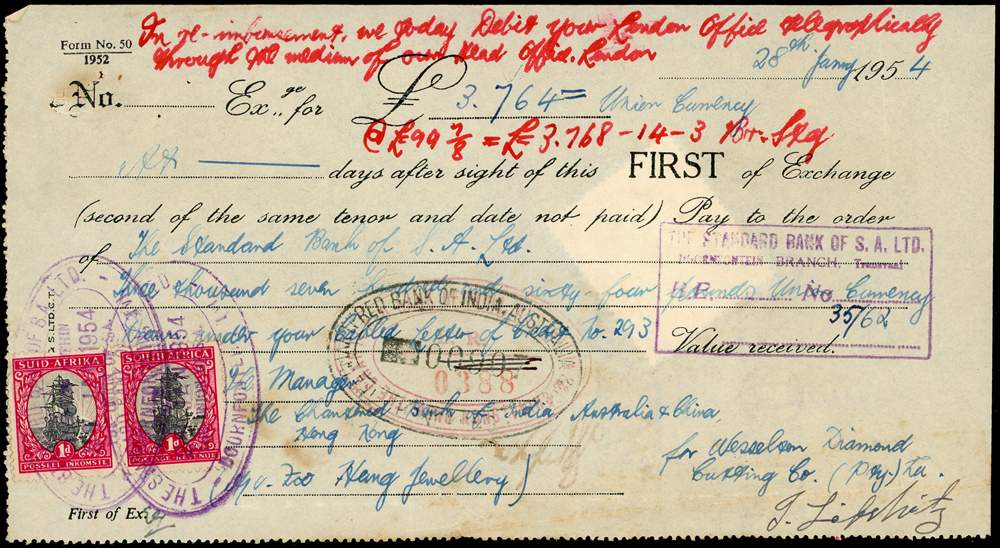 In re-imbursement, we today Debit your London Office telegraphically
through the medium of our Head Office. London
Form No. 50
1952
28th Jany 1954
No. Ex.ge for £ 3.764= Union Currency
@ £99 7/8 = £3.768-14-3 Br. Stg
At days after sight of this FIRST of Exchange
(second of the same tenor and date not paid) Pay to the order
of The Standard Bank of S.A. Ltd.
THE STANDARD BANK OF S. A. LTD.
DOORNFONTEIN BRANCH, Transvaal
No
35/62
Three thousand seven hundred and sixty four pounds Union Currency
Drawn under your Cabled Letter of Credit No. 293
Value received.
CHARTERED BANK OF INDIA, AUSTRALIA
0388
The Manager
The Chartered Bank of India, Australia & China
Hong Kong
Heng Jewellery)
for Wesselton Diamond
Cutting Co. (Pty.) Ltd.
SUID AFRIKA
1d
POSSEEL INKOMSTE
SOUTH AFRICA
1d
POSTAGE REVENUE
1954
First of Ex.